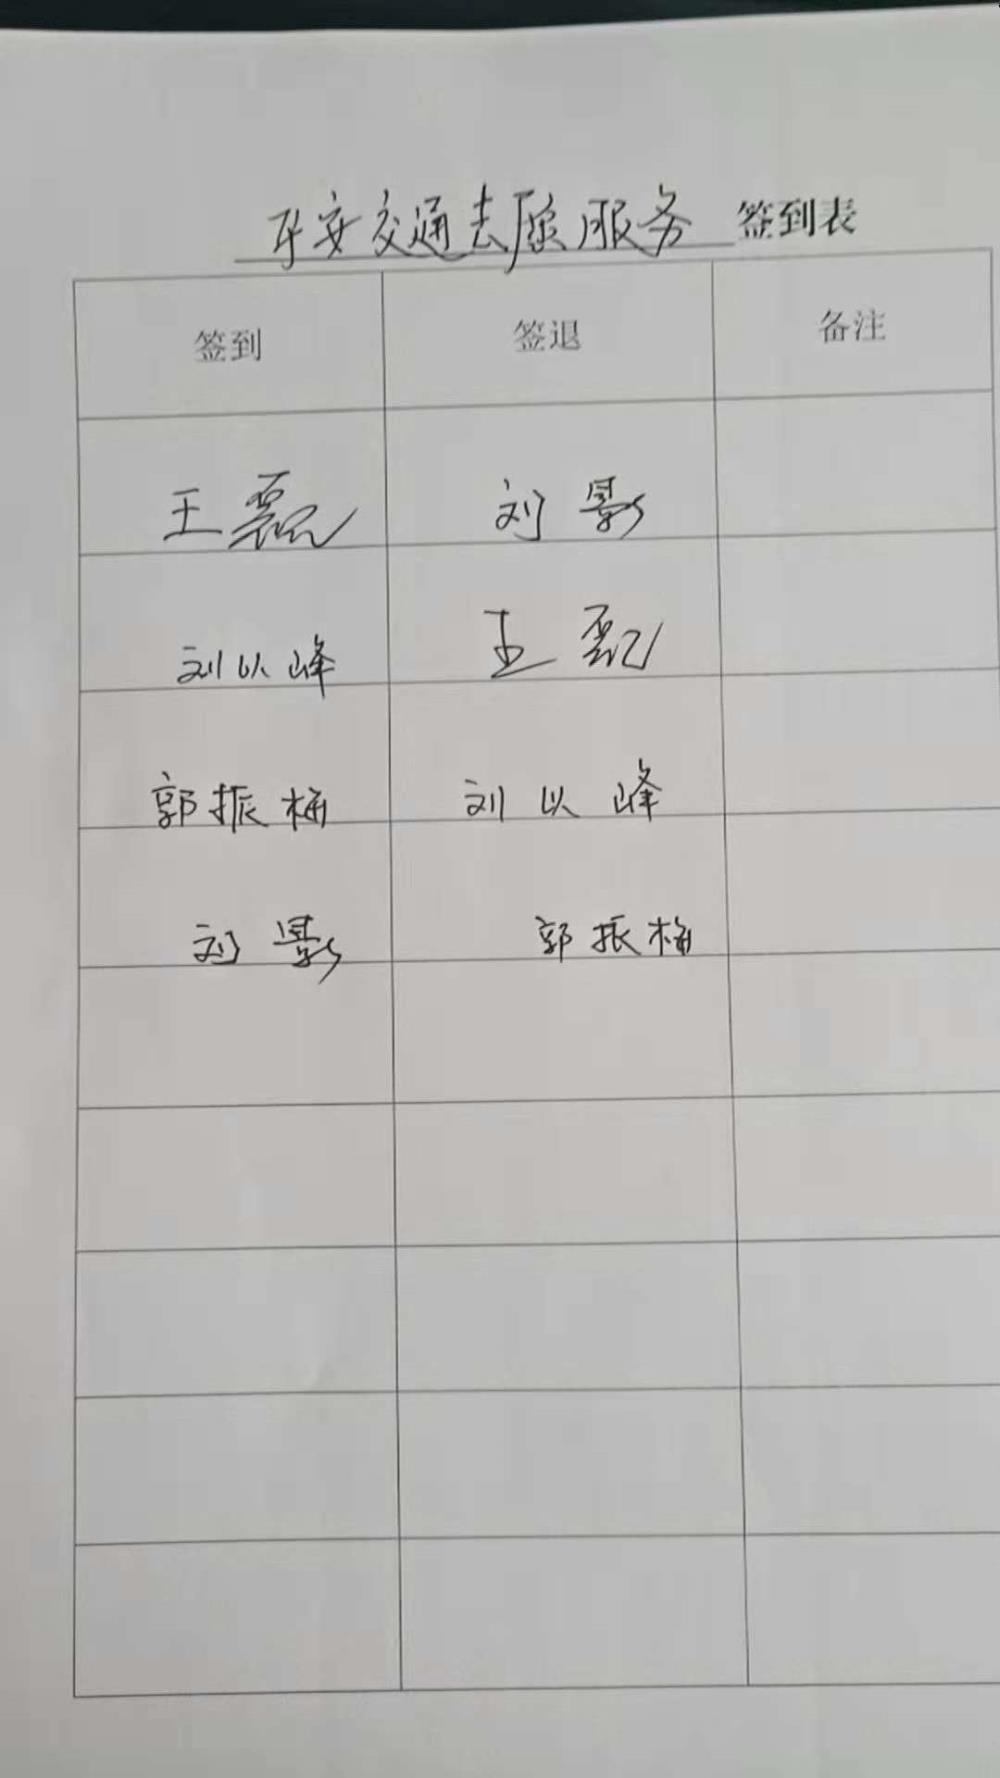 平安交通志愿服务 签到表
签到 签退 备注
王磊 刘影
刘以峰 王磊
郭振梅 刘以峰
刘影 郭振梅